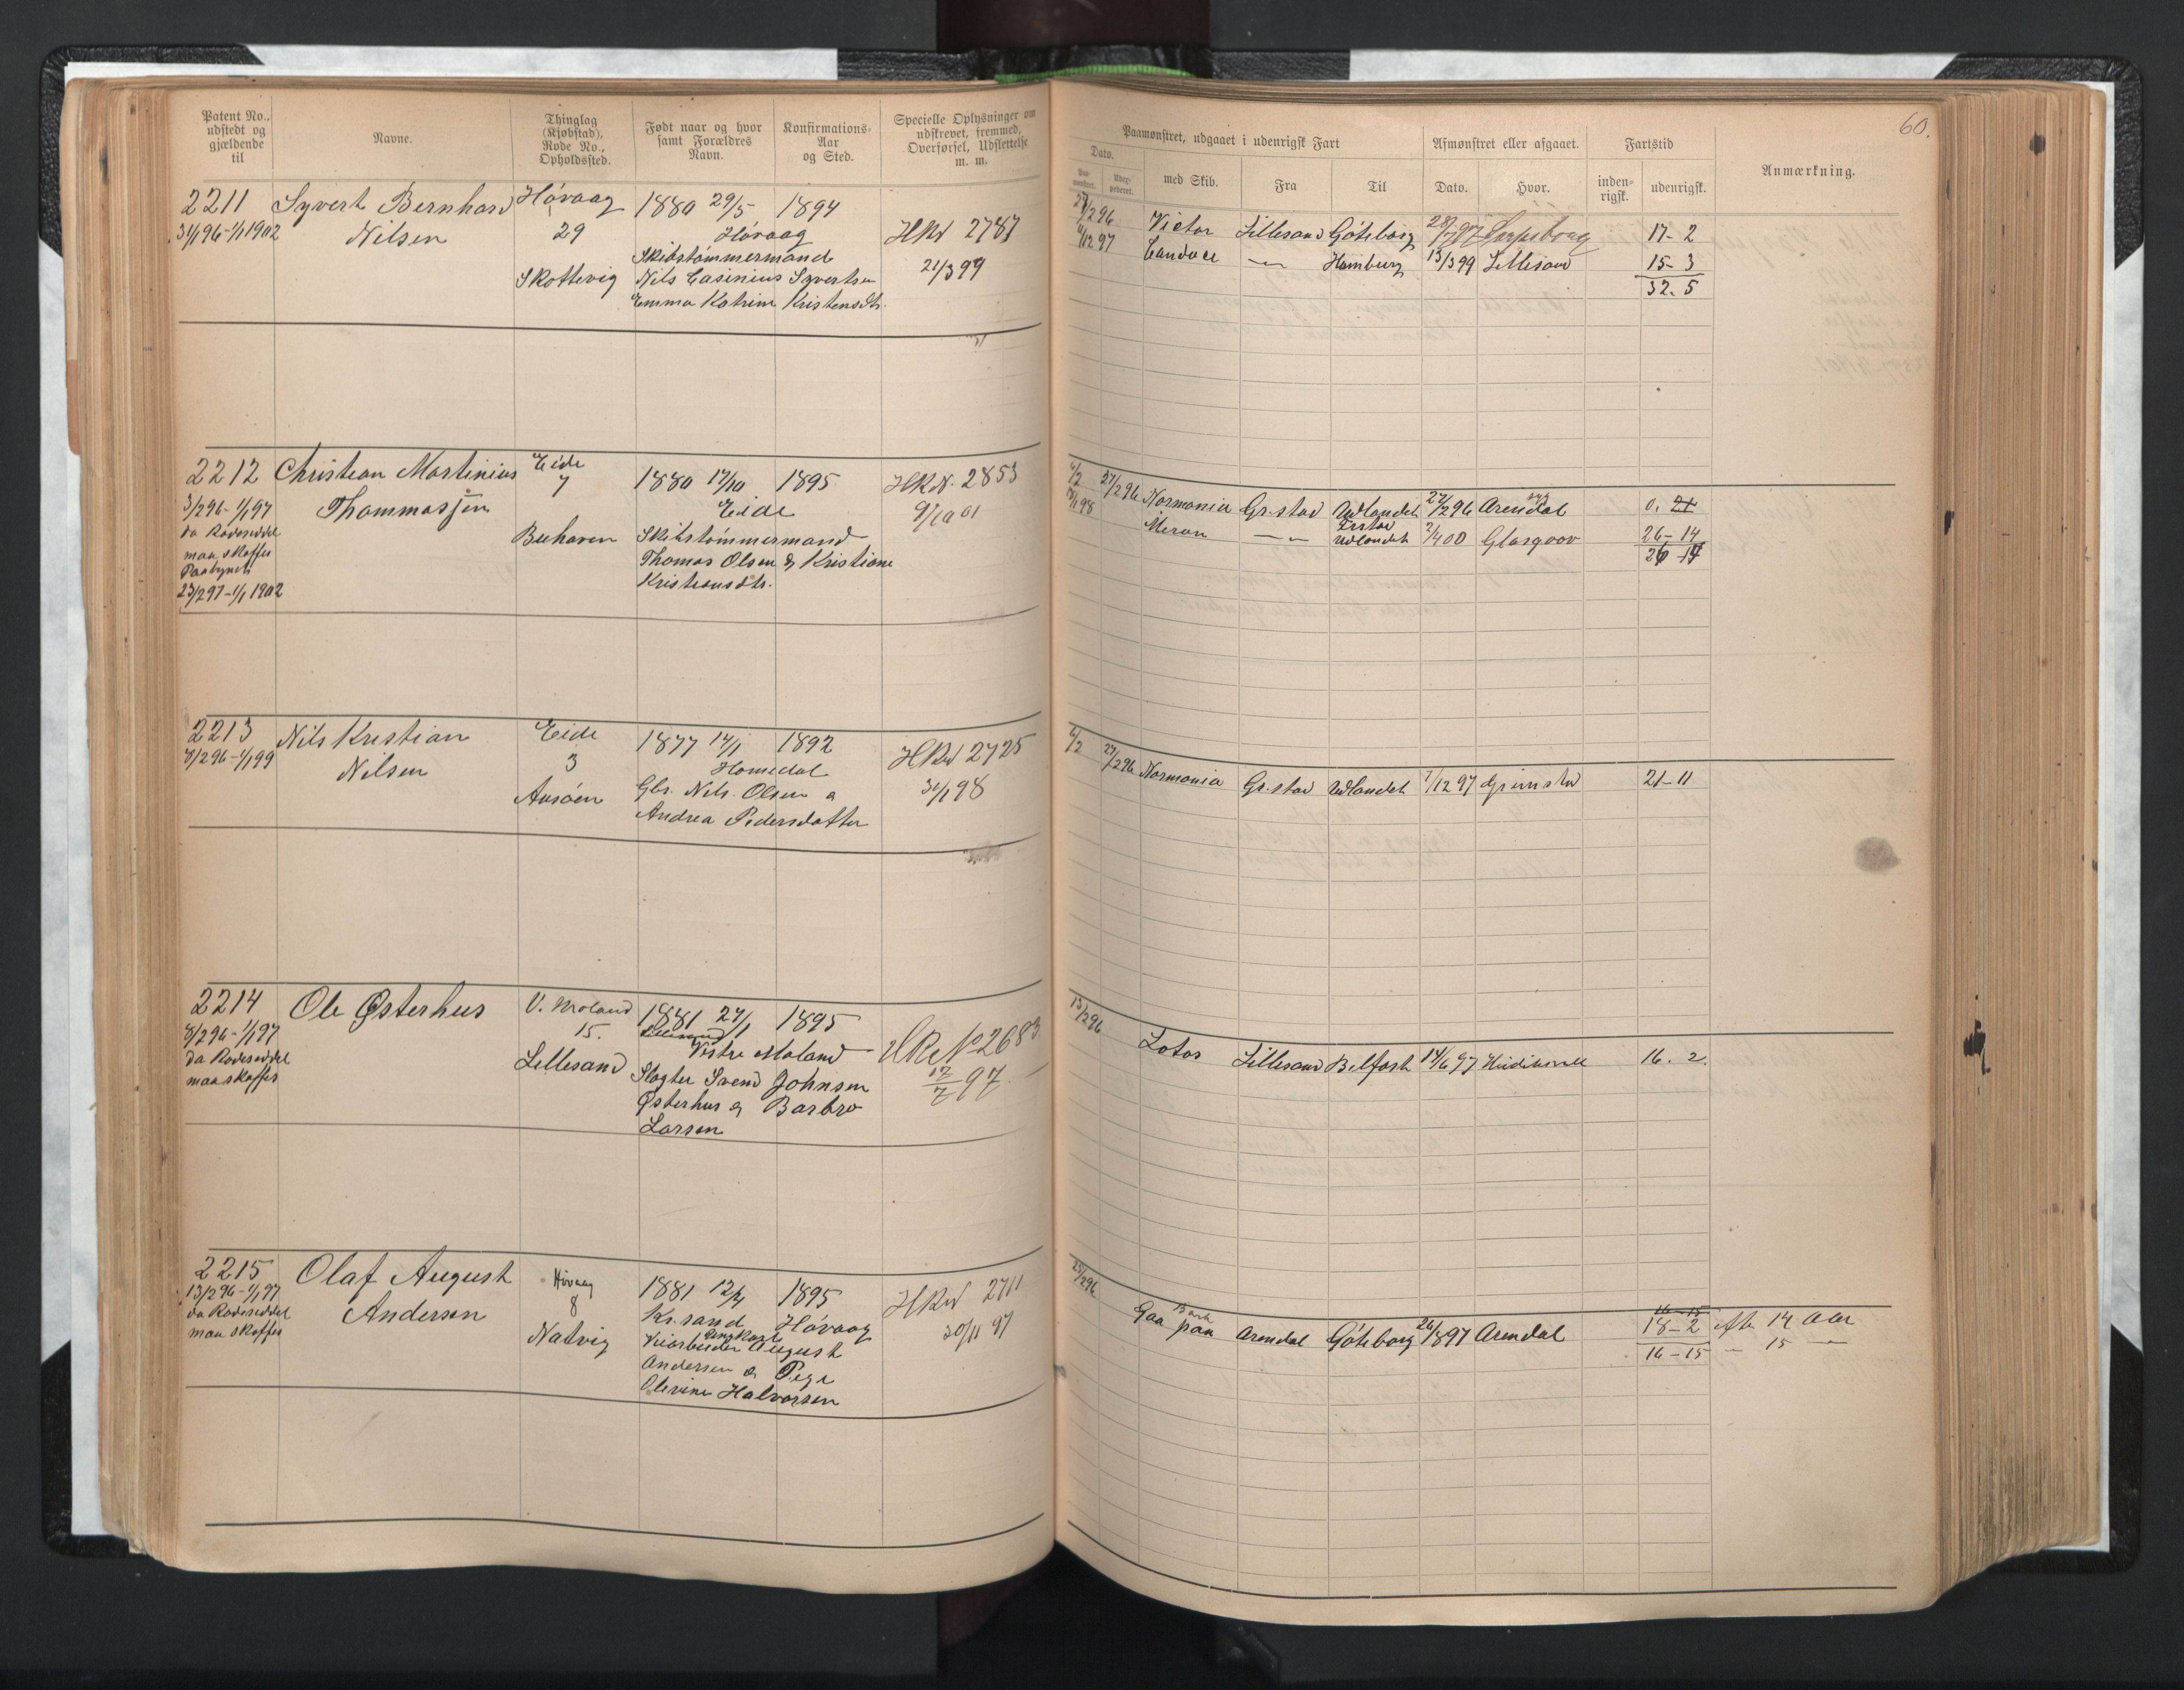 Patent No.,
udstedt og
gjældende
til
Navne.
Thinglag
(Kjøbstad),
Rode No.,
Opholdssted.
Født naar og hvor
samt Forældres
Navn.
Konfirmations-
Aar
og Sted.
Specielle Oplysninger om
udskrevet, fremmed,
Overførsel, Udslettelse
m. m.
2211 Syvert Bernhard Høvaag 1880 29/5 1894
31/1 96-1/1 1902 Nilsen 29 Høvaag HRN 2787
Skibstømmermand
Skottevig Nils Casinius Syvertsen 21/3 99
Emma Katrine Kristensdtr.
2212 Christian Martinius Eide 1880 17/10 1895 HRN. 2853
3/2 96-1/1 97 Thommassen 7 Eide 9/10 01
da Rodeseddel
maa skaffes Skibstømmermand
Thomas Olsen & Kristiane
23/2 97-1/1 1902 Kristiansdtr.
2213 Nils Kristian Eide 1877 14/1 1892 HRN 2725
8/2 96-1/1 99 Nilsen 3 Homedal 31/1 98
Gbr. Nils Olsen &
Andrea Pedersdatter
2214 Ole Østerhus V. Moland 1881 27/1 1895
8/2 96-1/1 97 15. Vestre Moland No 2683
da Rodeseddel Lillesand Slagter Svend Johnsen 17/7 97.
maa skaffes Østerhus & Barbro
Larsen
2215 Olaf August Høvaag 1881 12/4 1895 HRN 2711
13/2 96-1/1 97 Andersen 8 Kr.sand Høvaag 20/11 97
da Rodeseddel Natvig August
maa skaffes Andersen &
Olevine Halvorsen
60.
Paamønstret, udgaaet i udenrigsk Fart
Afmønstret eller afgaaet.
Fartstid
Anmærkning.
Dato.
Paa-
mønstret.
med Skib.
Fra
Til
Dato.
Hvor.
inden-
rigsk.
udenrigsk.
Victor Lillesand Göteborg 28/7 97 Sarpsborg 17-2
Candace — Hamburg 13/3 99 Lillesand 15-3
32.5
27/2 96 Normania Gr.stad Udlandet 27/2 96 Arendal 0. 21
— Udlandet 2/4 00 Glasgow 26-14
26-14
6/2 27/2 96 Normania Gr.stad Udlandet 7/12 97 Grimstad 21-11
13/2 96 Lotos Lillesand Belfast 14/6 97 16. 2.
25/2 96 Bark
Gaa paa Arendal Göteborg 26/8 97 Arendal 18-2 eft. 14 Aar
16-15 — 15 —